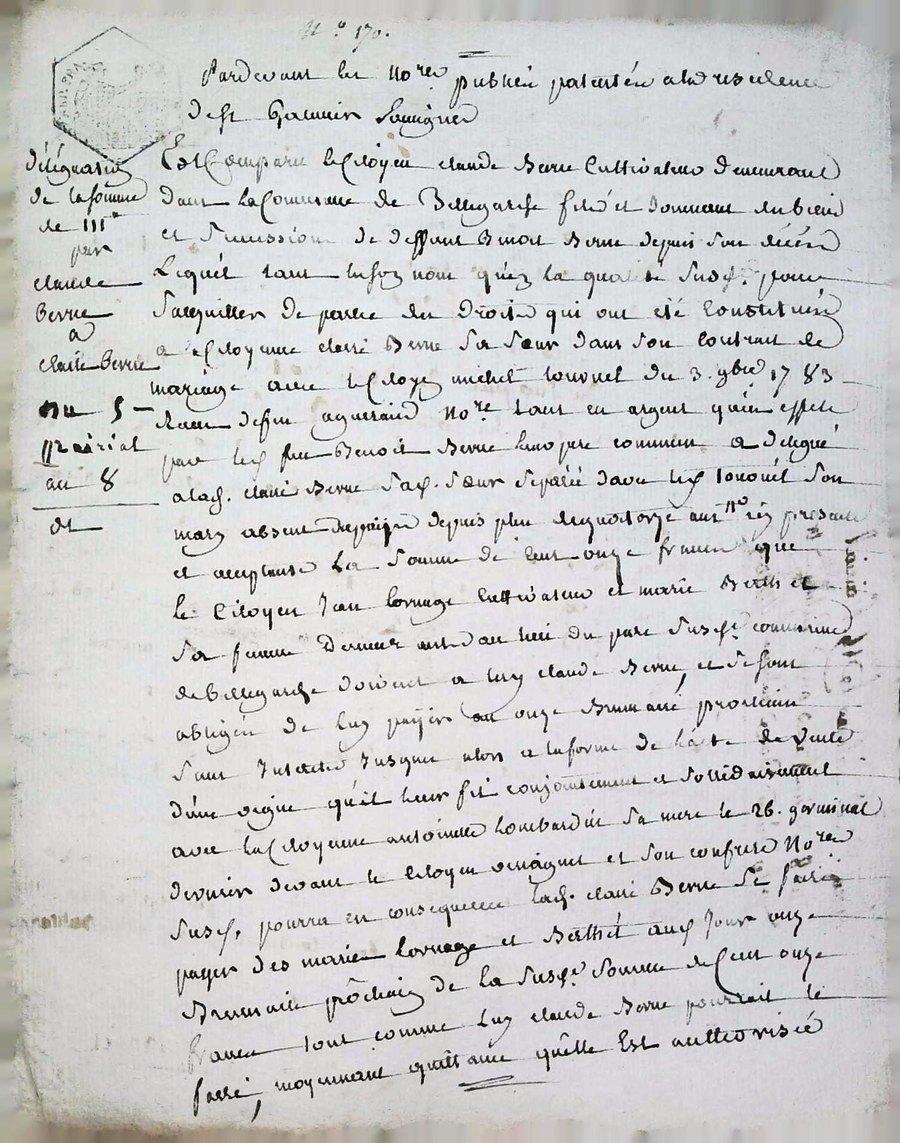 N.º 170.
Pardevant les No.res publics patentés a la residence
de st Galmier Soussignés
Est Comparu le Citoyen claude Berne Cultivateur demeurant
dans la Commune de Bellegarde fils et donnant des biens
et Succession de deffunt Benoit Berne depuis Son décés
Lequel tant en son nom qu'en la qualité Susd.e pour
S'acquitter de partie des Droits qui ont eté Constitués
a la Citoyenne claire Berne Sa Sœur dans Son Contrat de
mariage avec le Citoyen michel tournel du 3. 9bre 1783
No.re tant en argent qu'en effets
par led. feu Benoit Berne leur pere commun a delegué
a lad. claire Berne Sad. Sœur Separée davec led. Son
mary absent depuis plus de quatorze ans icy presente
et acceptante La Somme de Cent onze francs que
le Citoyen Jean Cornage Cultivateur et marie Berthet
Sa femme Demeurants au lieu du parc Susd.e commune
de Bellegarde doivent a luy claude Berne, et se sont
obligés de luy payer au onze Brumaire prochain
Sans Interets Jusques alors a la forme de l'acte de Vente
d'une vigne qu'il leur fit conjointement et Solidairement
avec la Citoyenne antoinette Lombardin Sa mere le 26. germinal
dernier devant le Citoyen et Son confrere No.res
Susd. pourra en consequence lad. claire Berne Se faire
payer des mariés Cornage et Berthet aud. Jour onze
Brumaire prochain de la Susd.e Somme de Cent onze
francs tout comme Luy claude Berne pourrait le
faire, moyennant quittance qu'elle Est authorisée
délégation
de la Somme
de 111
par
claude
Berne
a
claire Berne
Du 5
Prairial
an 8